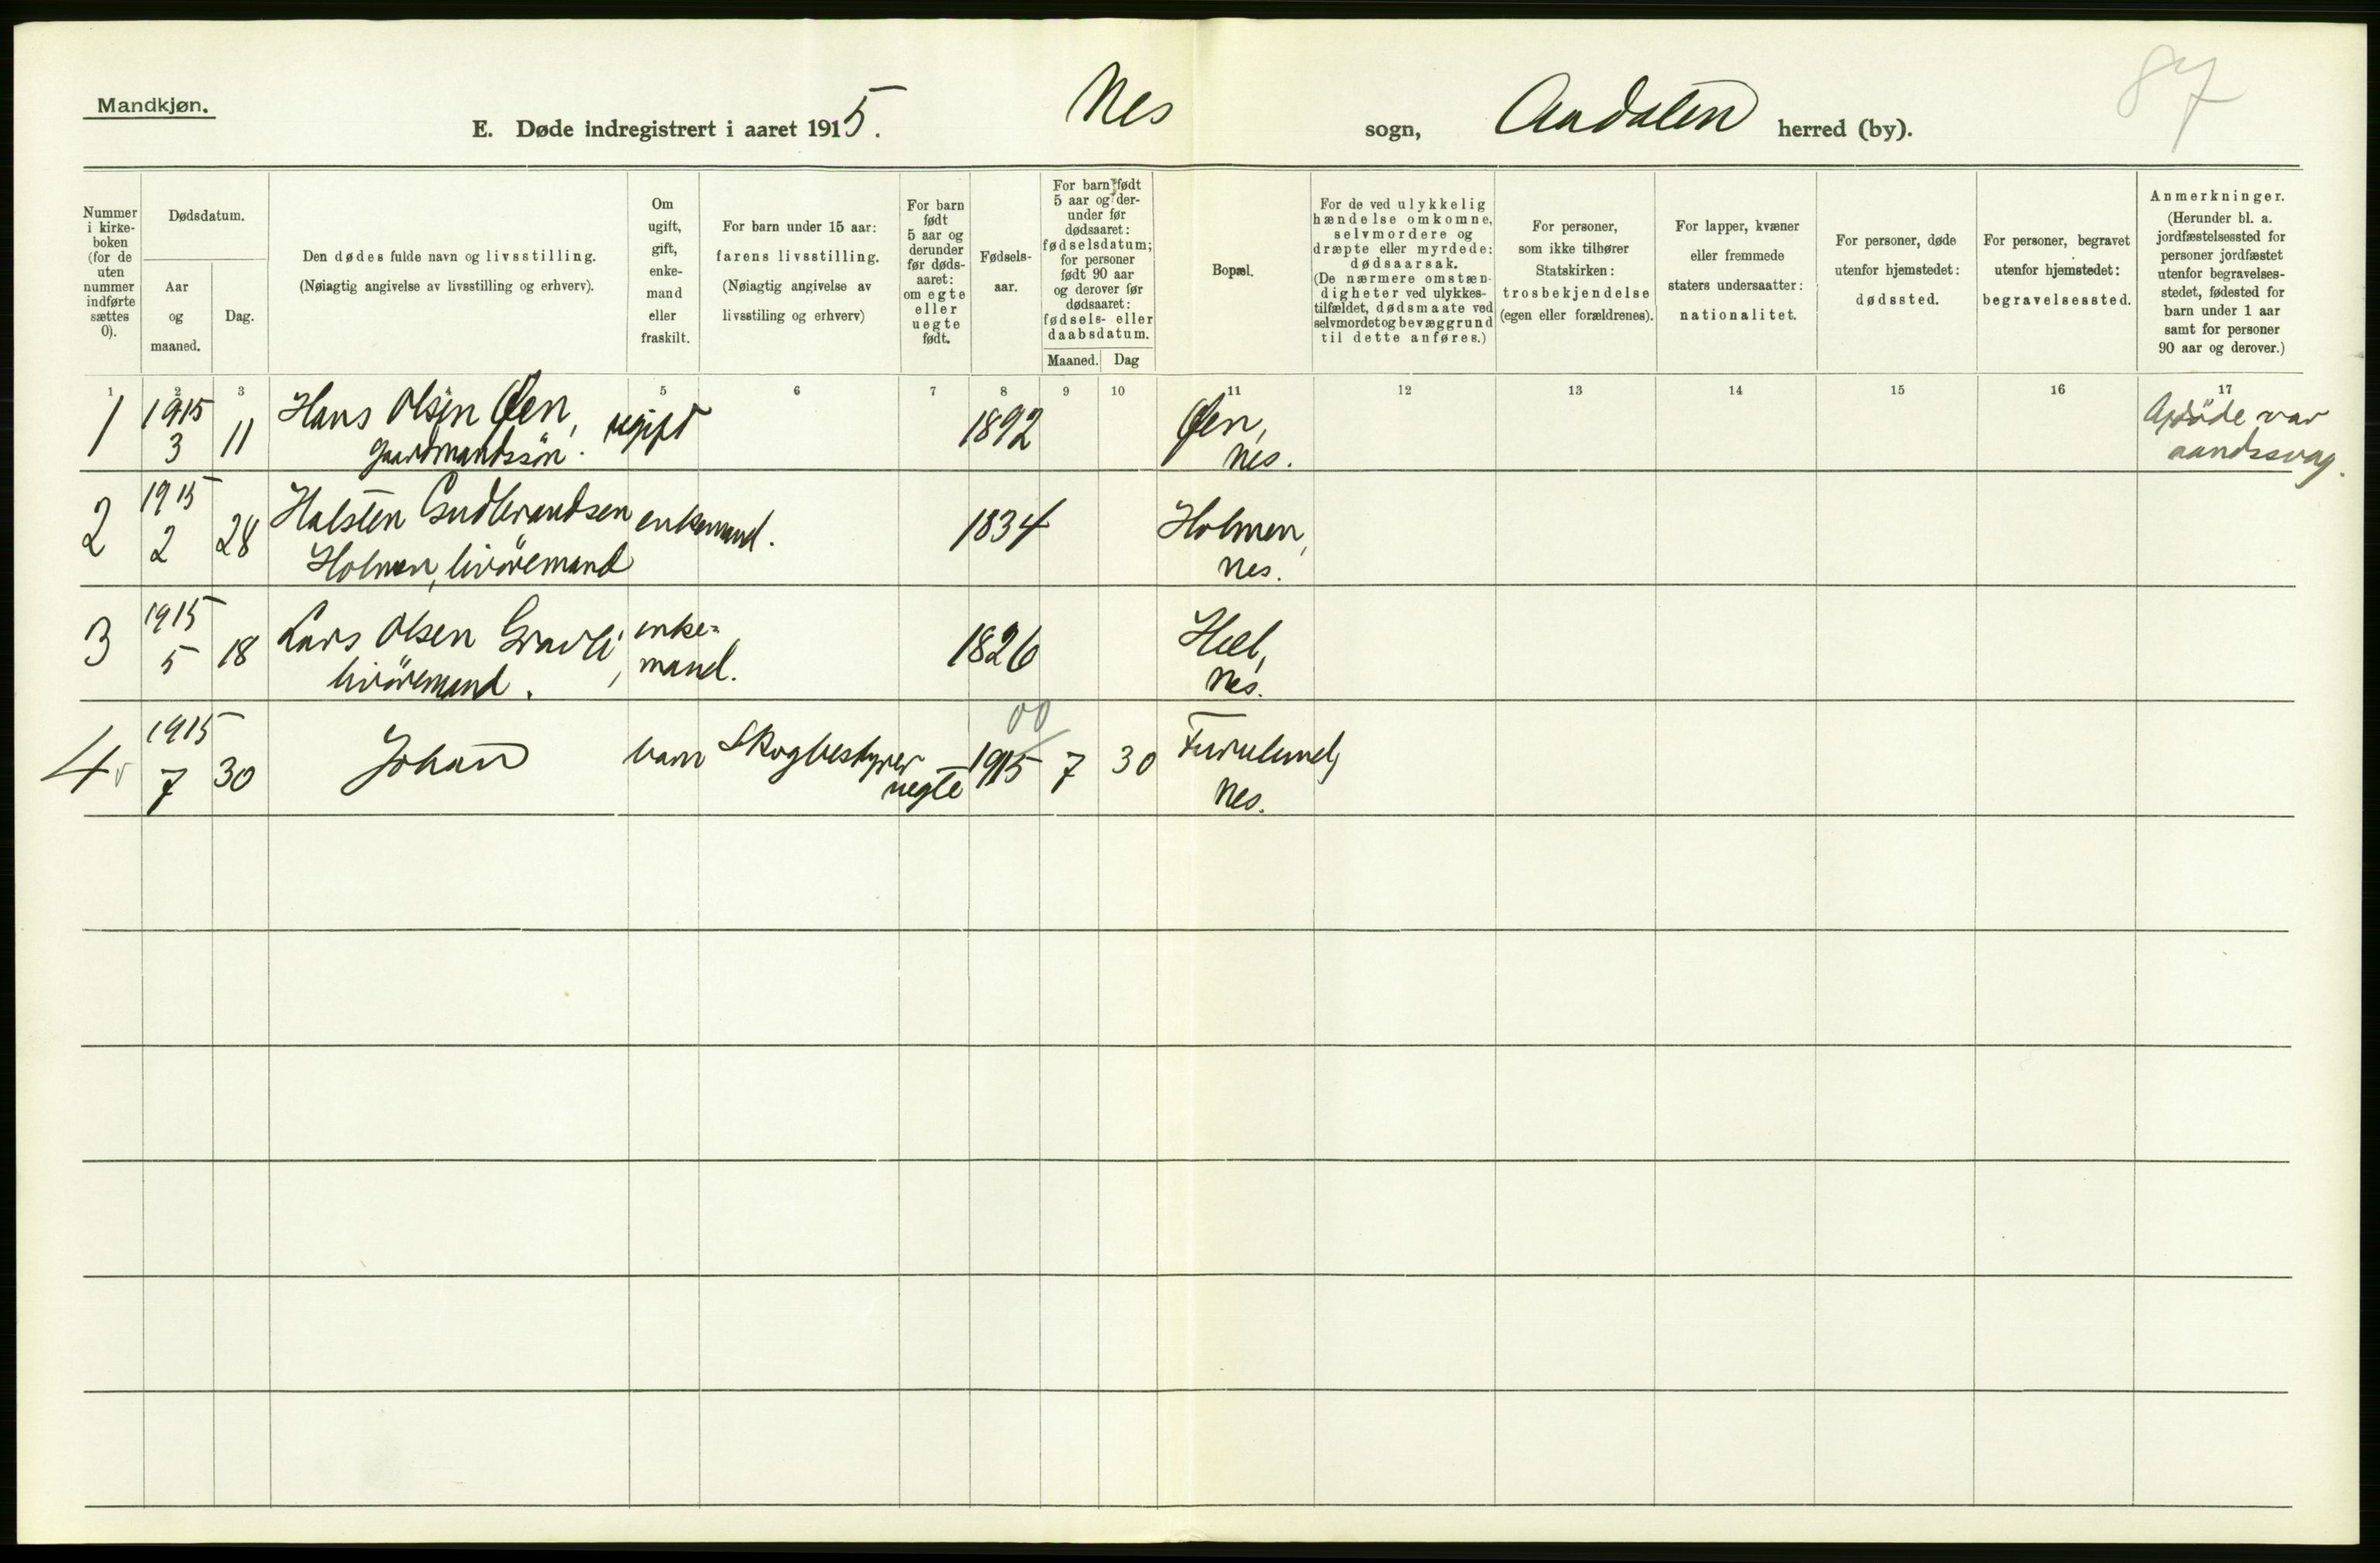 Mandkjøn.
E. Døde indregistrert i aaret 1915. Nes sogn, Aadalen herred (by).
87
Nummer
i kirke-
boken
(for de
uten
nummer
indførte
sættes
0).
Dødsdatum.
Aar
og
maaned.
Dag.
Den dødes fulde navn og livsstilling.
(Nøiagtig angivelse av livsstilling og erhverv).
Om
ugift,
gift,
enke-
mand
eller
fraskilt.
For barn under 15 aar:
farens livsstilling.
(Nøiagtig angivelse av
livsstiling og erhverv)
For barn
født
5 aar og
derunder
før døds-
aaret:
om egte
eller
uegte
født.
Fødsels-
aar.
For barn født
5 aar og der-
under før
dødsaaret:
fødselsdatum;
for personer
født 90 aar
og derover før
dødsaaret:
fødsels- eller
daabsdatum.
Maaned. Dag
Bopæl.
For de ved ulykkelig
hændelse omkomne,
selvmordere og
dræpte eller myrdede:
dødsaarsak.
(De nærmere omstæn-
digheter ved ulykkes-
tilfældet, dødsmaate ved
selvmordet og bevæggrund
til dette anføres.)
For personer,
som ikke tilhører
Statskirken:
trosbekjendelse
(egen eller forældrenes).
For lapper, kvæner
eller fremmede
staters undersaatter:
nationalitet.
For personer, døde
utenfor hjemstedet:
dødssted.
For personer, begravet
utenfor hjemstedet:
begravelsessted.
Anmerkninger.
(Herunder bl. a.
jordfæstelsessted for
personer jordfæstet
utenfor begravelses-
stedet, fødested for
barn under 1 aar
samt for personer
90 aar og derover.)
1 2 3 4 5 6 7 8 9 10 11 12 13 14 15 16 17
1 1915 11 Hans Olsen Øen, ugift 1892 Øen, Afdöde var
3 gaardmandssön. Nes. aandssvag.
2 1915 28 Halsten Gudbrandsen enkemand. 1834 Holmen,
2 Holmen, livöremand Nes.
3 1915 18 Lars Olsen Gravli, enke= 1826 Hæl,
5 livöremand. mand. Nes.
00
4 1915 30 Johan barn Skogbestyrer 1915 7 30 Furulund,
7 uegte Nes.